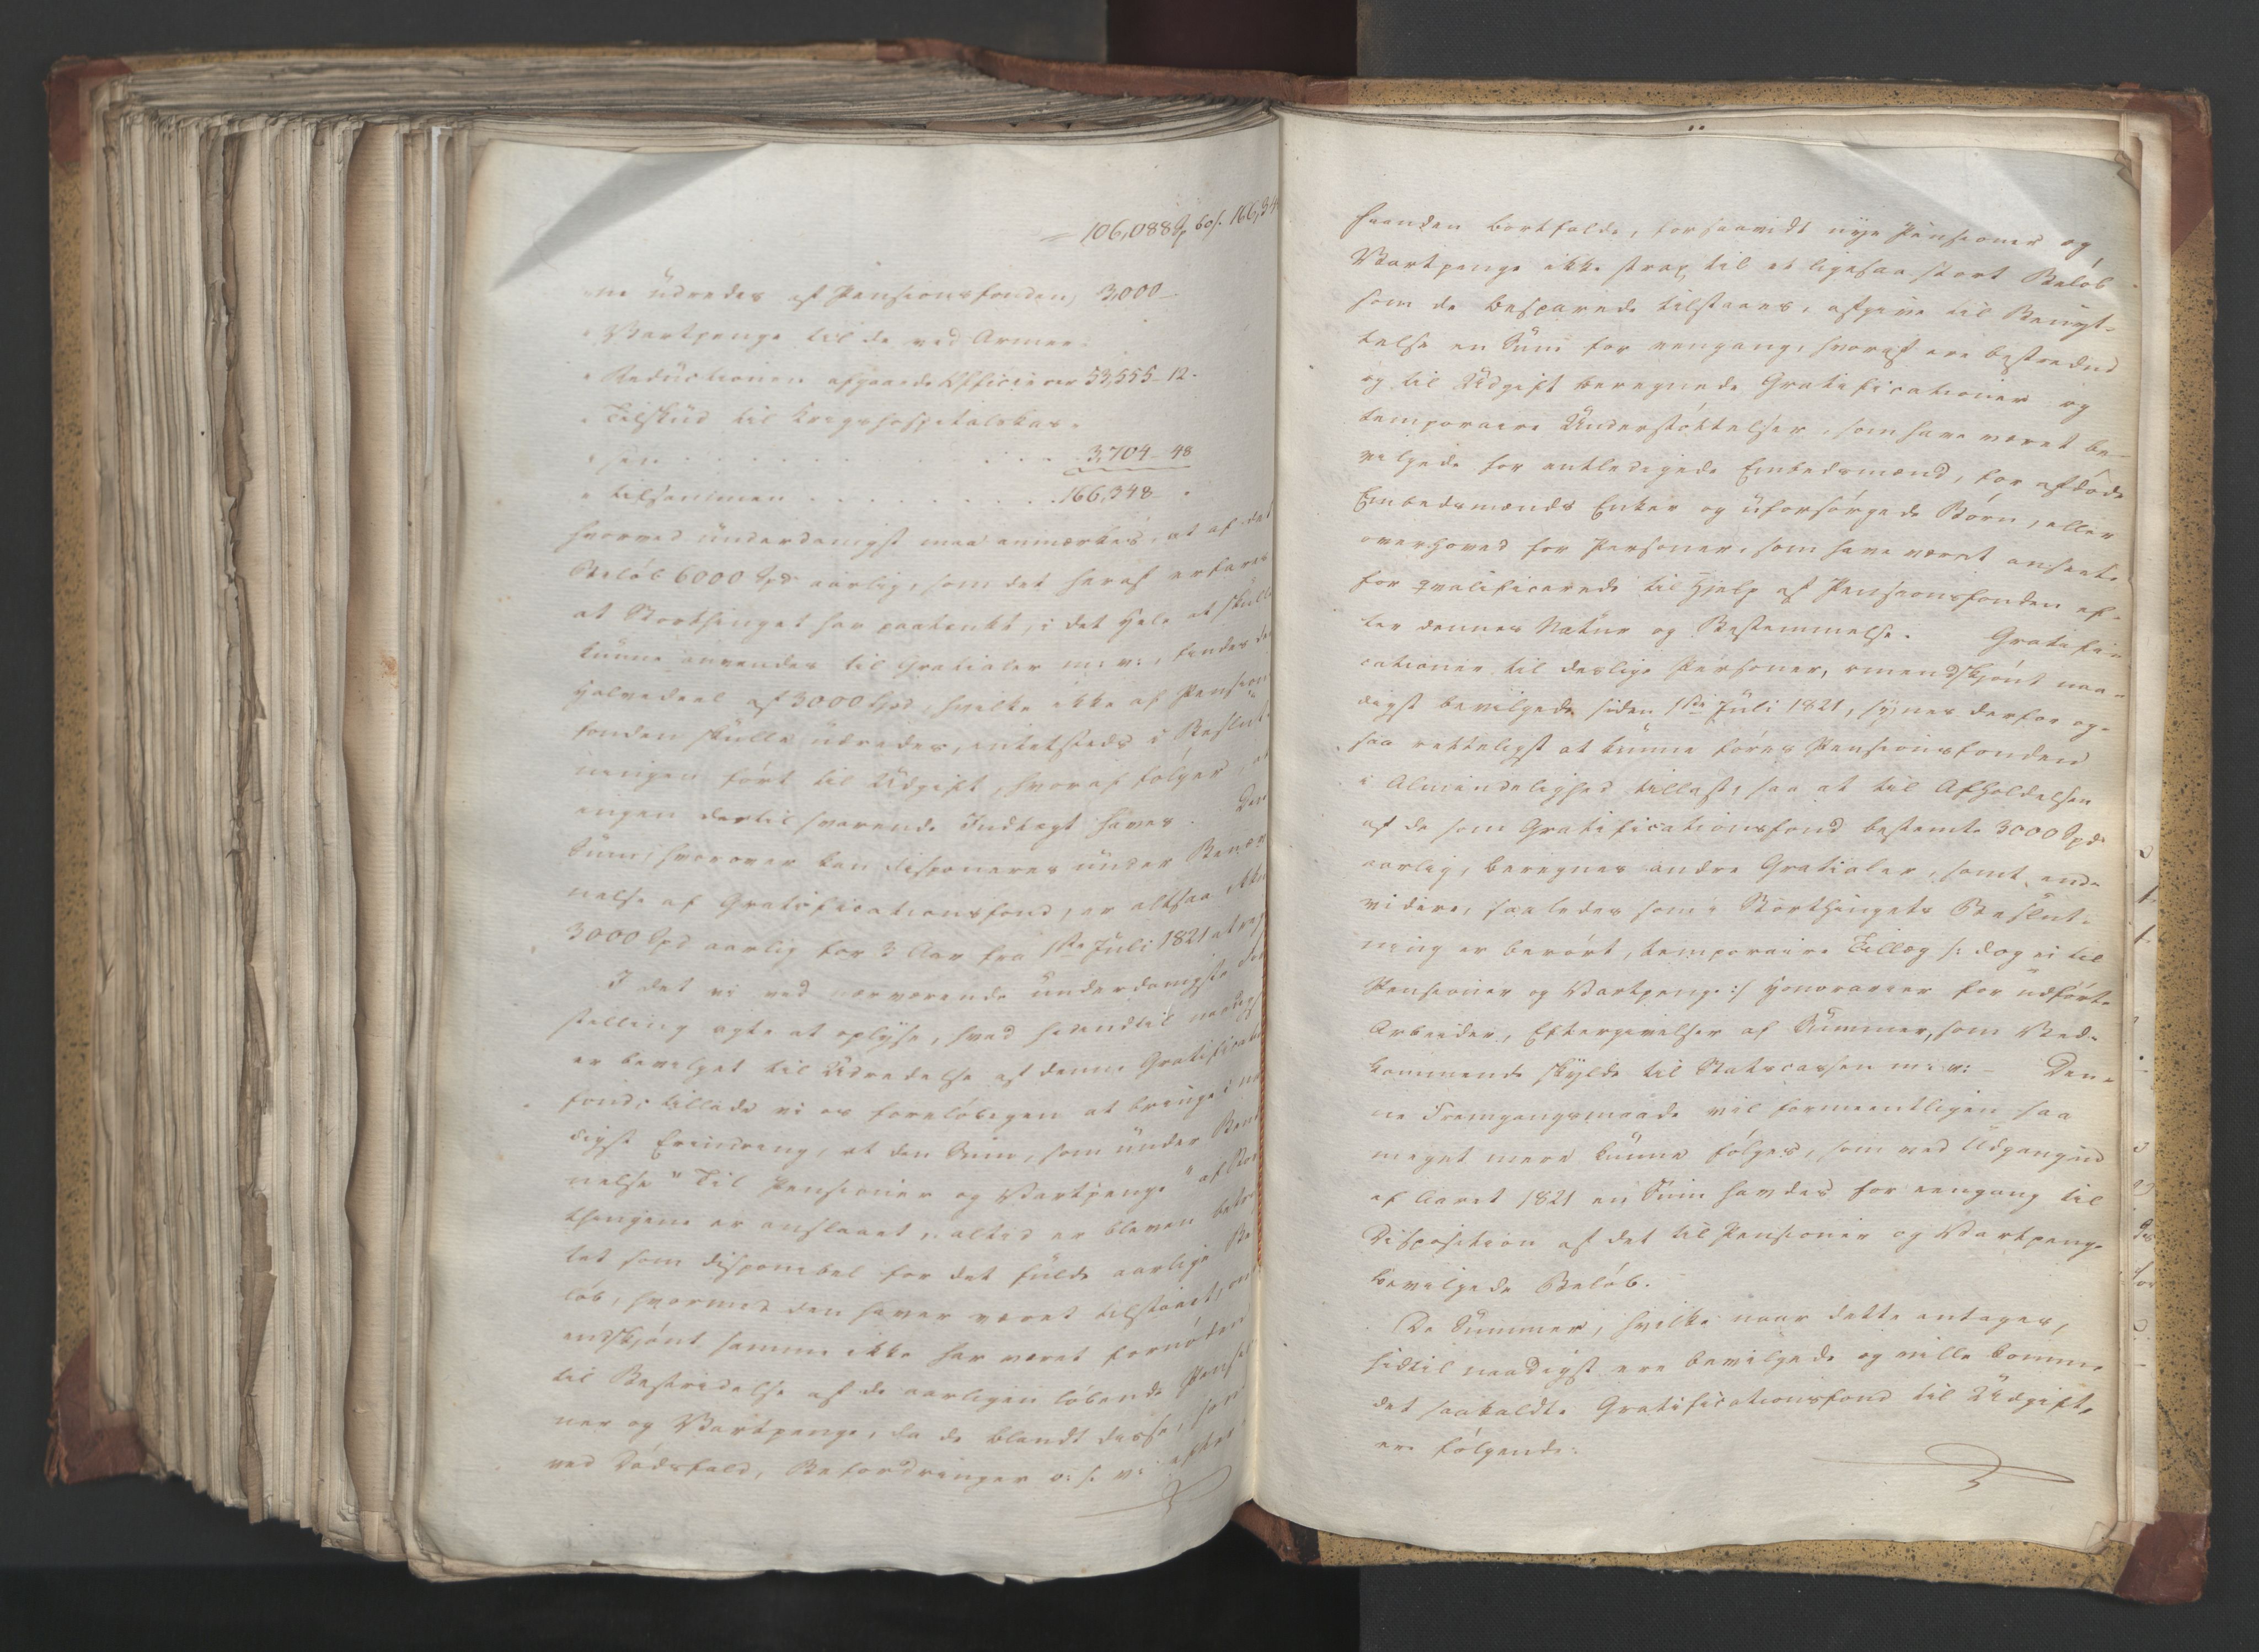 106,088 Sp 60 s. 166,34
ne udredes af Pensionsfonden) 3,000 —
" Vartpenge til de ved Armee-
" Reductionen afgaaede Officierer 53,555 - 12.
" Tilskud til Krigshospitalskas-
" sen . . . . . . . . . 3,704 - 48
" tilsammen . . . . . . . . . 166,348 - "
hvorved underdanigst maa anmærkes, at af det
Beløb 6000 Spd aarlig, som det heraf erfares
at Storthinget har paatænkt, i det Hele at skulle
kunne anvendes til Gratialer m: v:, findes den
halvedeel af 3000 Spd, hvilke ikke af Pension
fonden skulle udredes, intetsteds i Beslut-
ningen ført til Udgift, hvoraf følger, at
ingen dertil svarende Indtægt haves. Den
Sum, hvorover kan disponeres under Benæv-
nelse af Gratificationsfond, er altsaa ikkun
3000 Spd aarlig for 3 Aar fra 1ste Juli 1821 at re
I det vi ved nærværende underdanigste Fore
stilling agte at oplyse, hvad hidindtil naadigst
er bevilget til Udredelse af denne Gratifications
fond, tillade vi os foreløbigen at bringe i naa
digst Erindring, at den Sum, som under Benæv
nelse "Til Pensioner og Vartpenge" af Stor
thingene er anslaaet, altid er bleven betrag
tet som disponibel for det fulde aarlige Be
løb, hvormed den haver været tilstaaet, om
endskjønt samme ikke har været fornøden
til Bestridelse af de aarligen løbende Pensio
ner og Vartpenge, da de blandt disse, som
ved Dødsfald, Befordringer o: s: v: efter
haanden bortfalde, forsaavidt nye Pensioner og
Vartpenge ikke strax til et ligesaa stort Beløb
som de besparede tilstaaes, afgive til Benyt-
telse en Sum for eengang, hvoraf ere bestredne
og til Udgift beregnede Gratificationer og
temporaire Understøttelser, som have været be-
vilgede for entledigede Embedsmænd, for afdøde
Embedsmænds Enker og uforsørgede Børn, eller
overhoved for Personer, som have været anseete
for qvalificerede til Hjelp af Pensionsfonden ef-
ter dennes Natur og Bestemmelse. Gratifi-
cationer til deslige Personer, omendskjønt naa-
digst bevilgede siden 1ste Juli 1821, synes derfor og-
saa retteligst at kunne føres Pensionsfonden
i Almindelighed tillast, saa at til Afholdelsen
af de som Gratificationsfond bestemte 3000 Spd.
aarlig, beregnes andre Gratialer, samt end-
videre, saaledes som i Storthingets Beslut-
ning er berørt, temporaire Tillæg /: dog ei til
Pensioner og Vartpenge :/ Honorarier for udførte
Arbeider, Eftergivelser af Summer, som Ved-
kommende skylde til Statscassen m: v: — Den-
ne Fremgangsmaade vil formeentligen saa
meget mere kunne følges, som ved Udgangen
af Aaret 1821 en Sum havdes for eengang til
Disposition af det til Pensioner og Vartpenge
bevilgede Beløb.
De Summer, hvilke naar dette antages,
hidtil naadigst ere bevilgede og ville komme
det saakaldte Gratificationsfond til Udgift,
ere følgende: